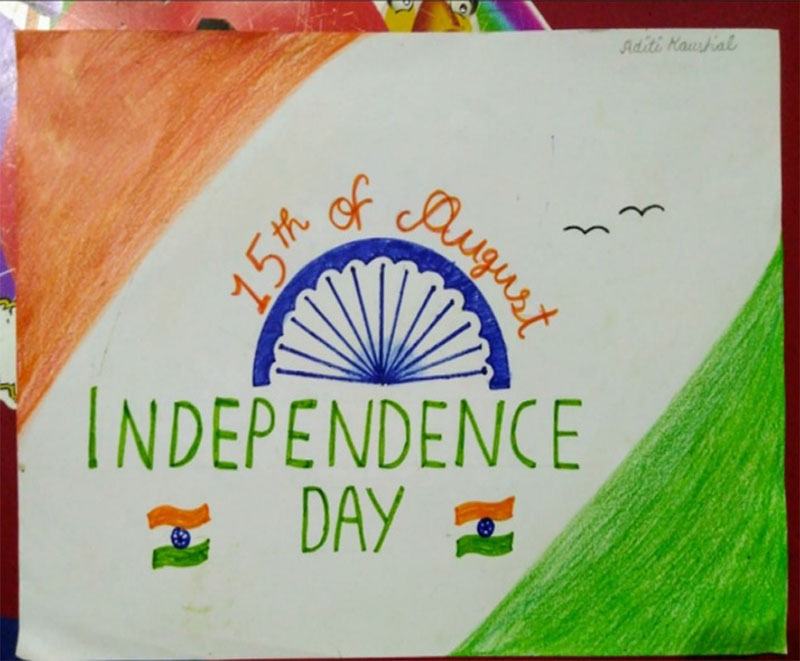 Aditi Kaushal
15th of August
INDEPENDENCE
DAY